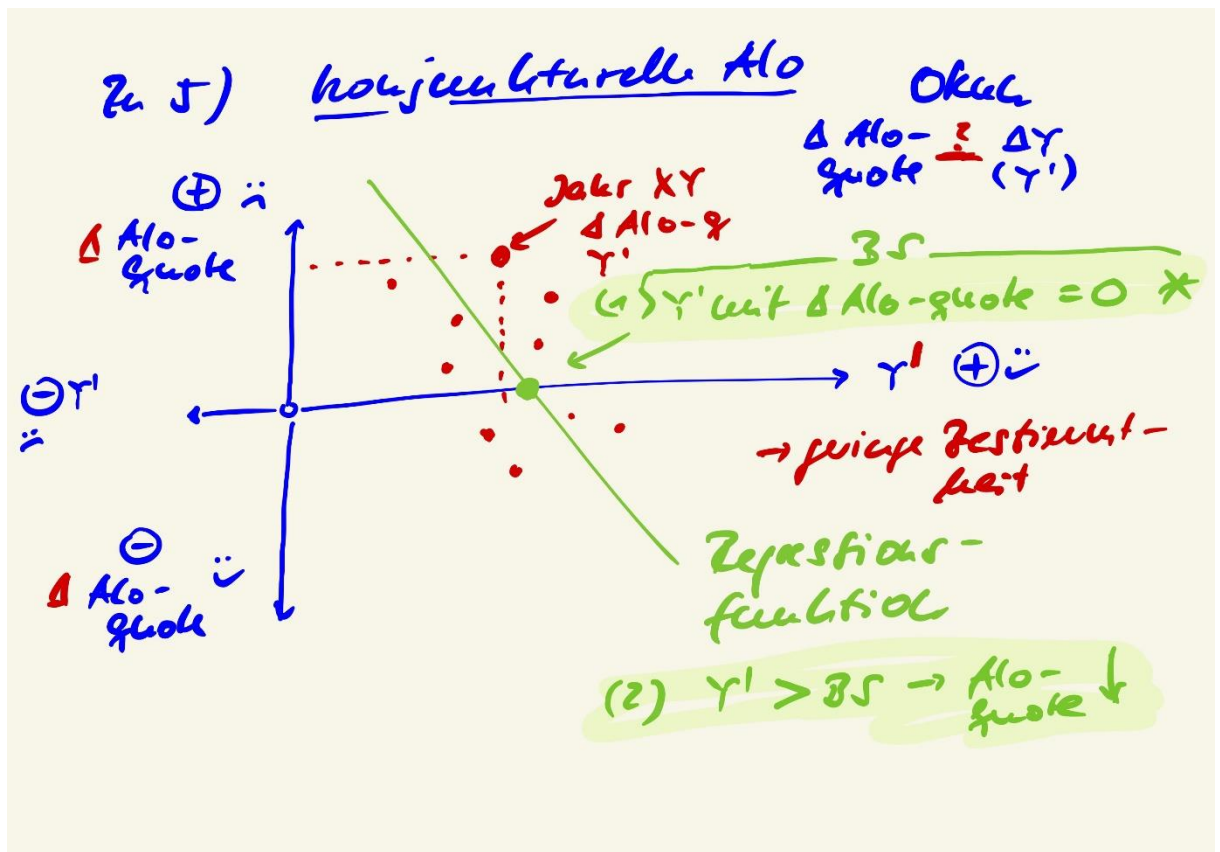 Zu 5) konjunkturelle Alo
Okun
Δ Alo- ? ΔY
quote (Y')
⊕
Δ Alo-
quote
Jahr XY
Δ Alo-q
Y'
BS
(1) Y' mit Δ Alo-quote = 0 *
⊖ Y'
Y' ⊕
→ geringe Bestimmt-
heit
⊖
Δ Alo-
quote
Regressions-
funktion
(2) Y' > BS → Alo- ↓
quote